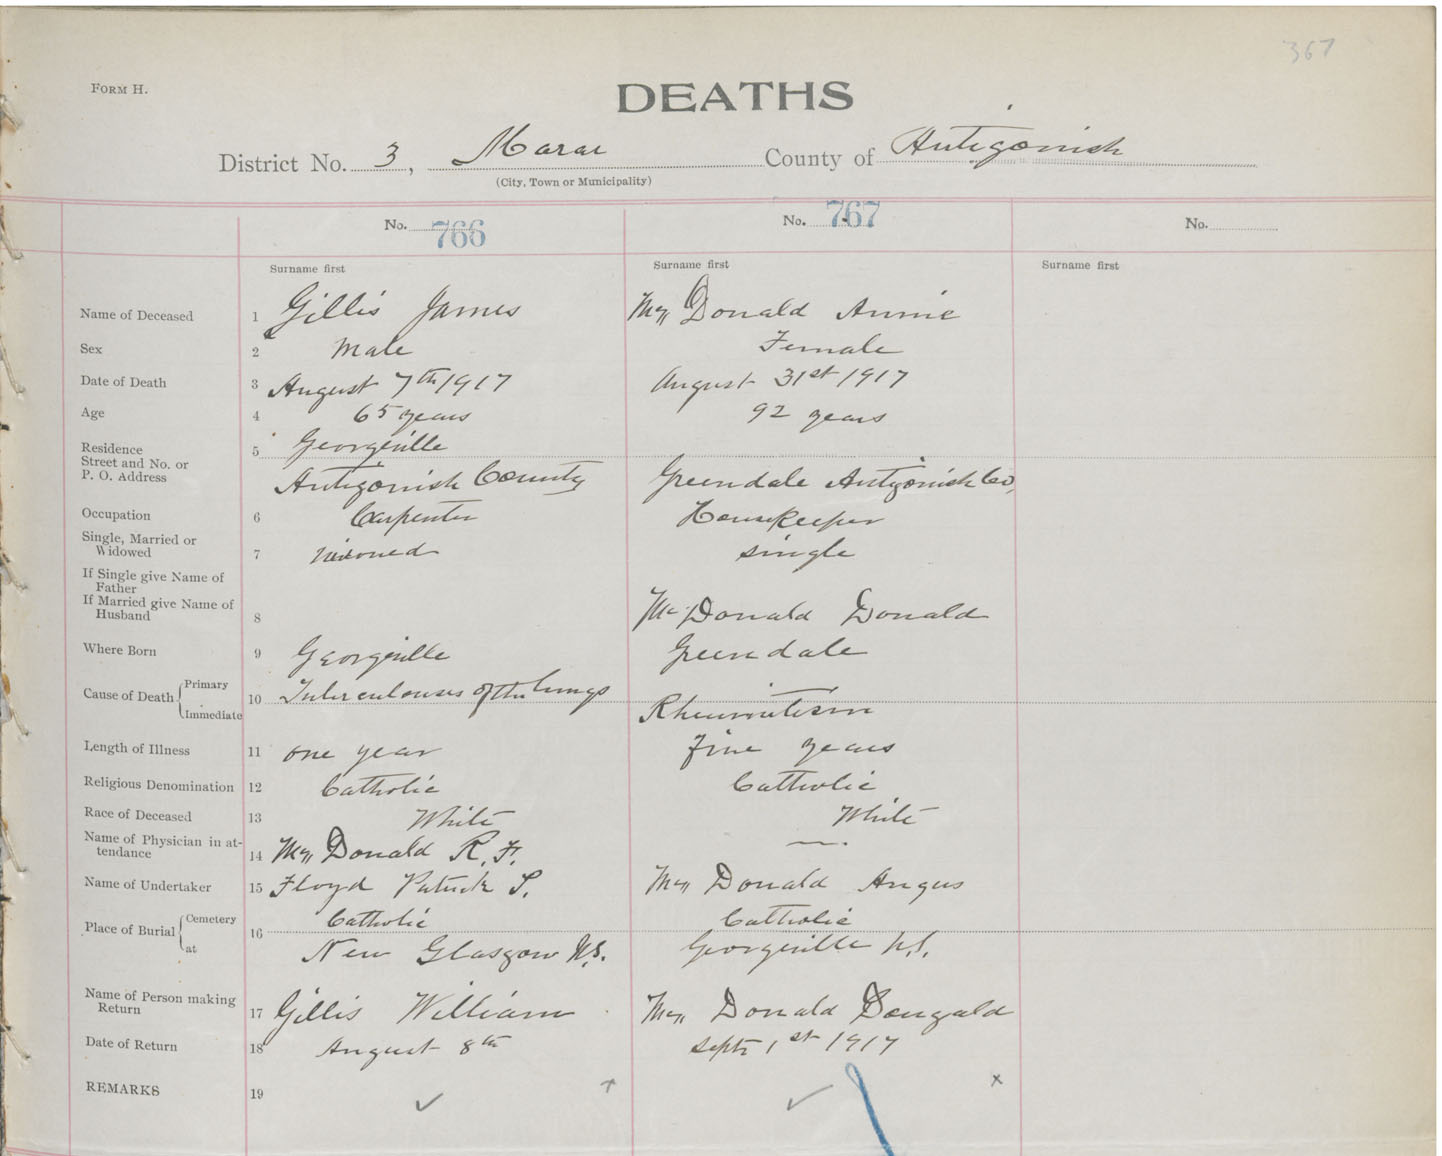 367
FORM H.
DEATHS
District No. 3, Marar County of Antigonish
(City, Town or Municipality)
No. 766 No. 767 No.
Surname first Surname first Surname first
Name of Deceased 1 Gillis James Mc Donald Annie
Sex 2 Male Female
Date of Death 3 August 7th 1917 August 31st 1917
Age 4 65 years 92 years
Residence 5 Georgeville
Street and No. or
P. O. Address Antigonish County Greendale Antigonish Co,
Occupation 6 Carpenter Housekeeper
Single, Married or
Widowed 7 single
If Single give Name of
Father
If Married give Name of
Husband 8 Mc Donald Donald
Where Born 9 Georgeville Greendale
Cause of Death Primary 10 Tuberculouses of the lungs
Immediate Rheumitism
Length of Illness 11 one year five years
Religious Denomination 12 Catholic Catholic
Race of Deceased 13 White White
Name of Physician in at-
tendance 14 Mc Donald R. F. —.
Name of Undertaker 15 Floyd Patrick S. Mc Donald Angus
Place of Burial Cemetery 16 Catholic Catholic
at New Glasgow N.S. Georgeville N.S.
Name of Person making
Return 17 Gillis William Mc Donald Dougald
Date of Return 18 August 8th Sept 1st 1917
REMARKS 19